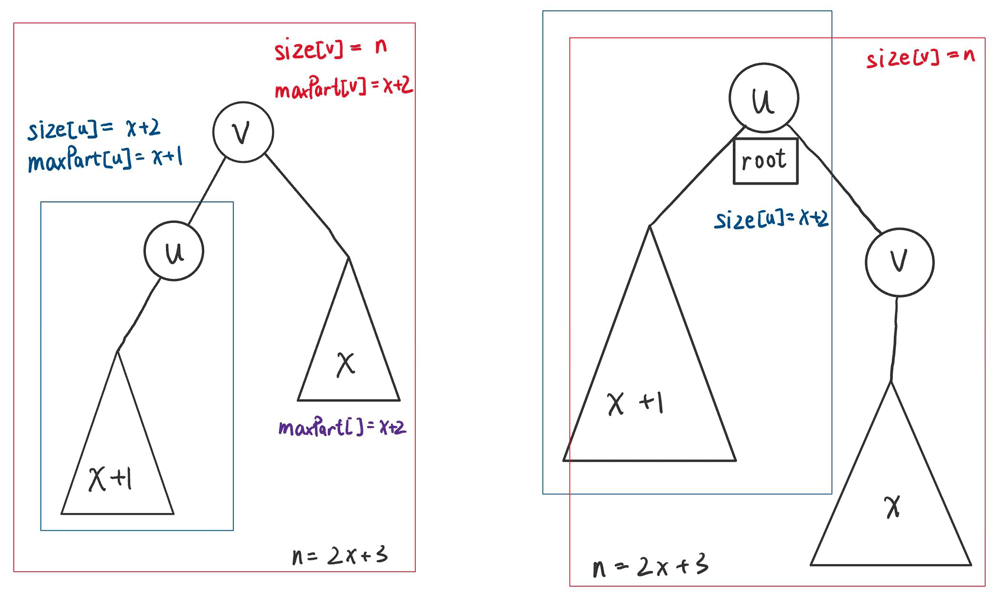 size[v] = n
maxPart[v] = x+2
size[u] = x+2
maxPart[u] = x+1
V
u
x
x+1
maxPart[] = x+2
n = 2x+3
size[v] = n
u
root
size[u] = x+2
V
x+1
x
n = 2x+3